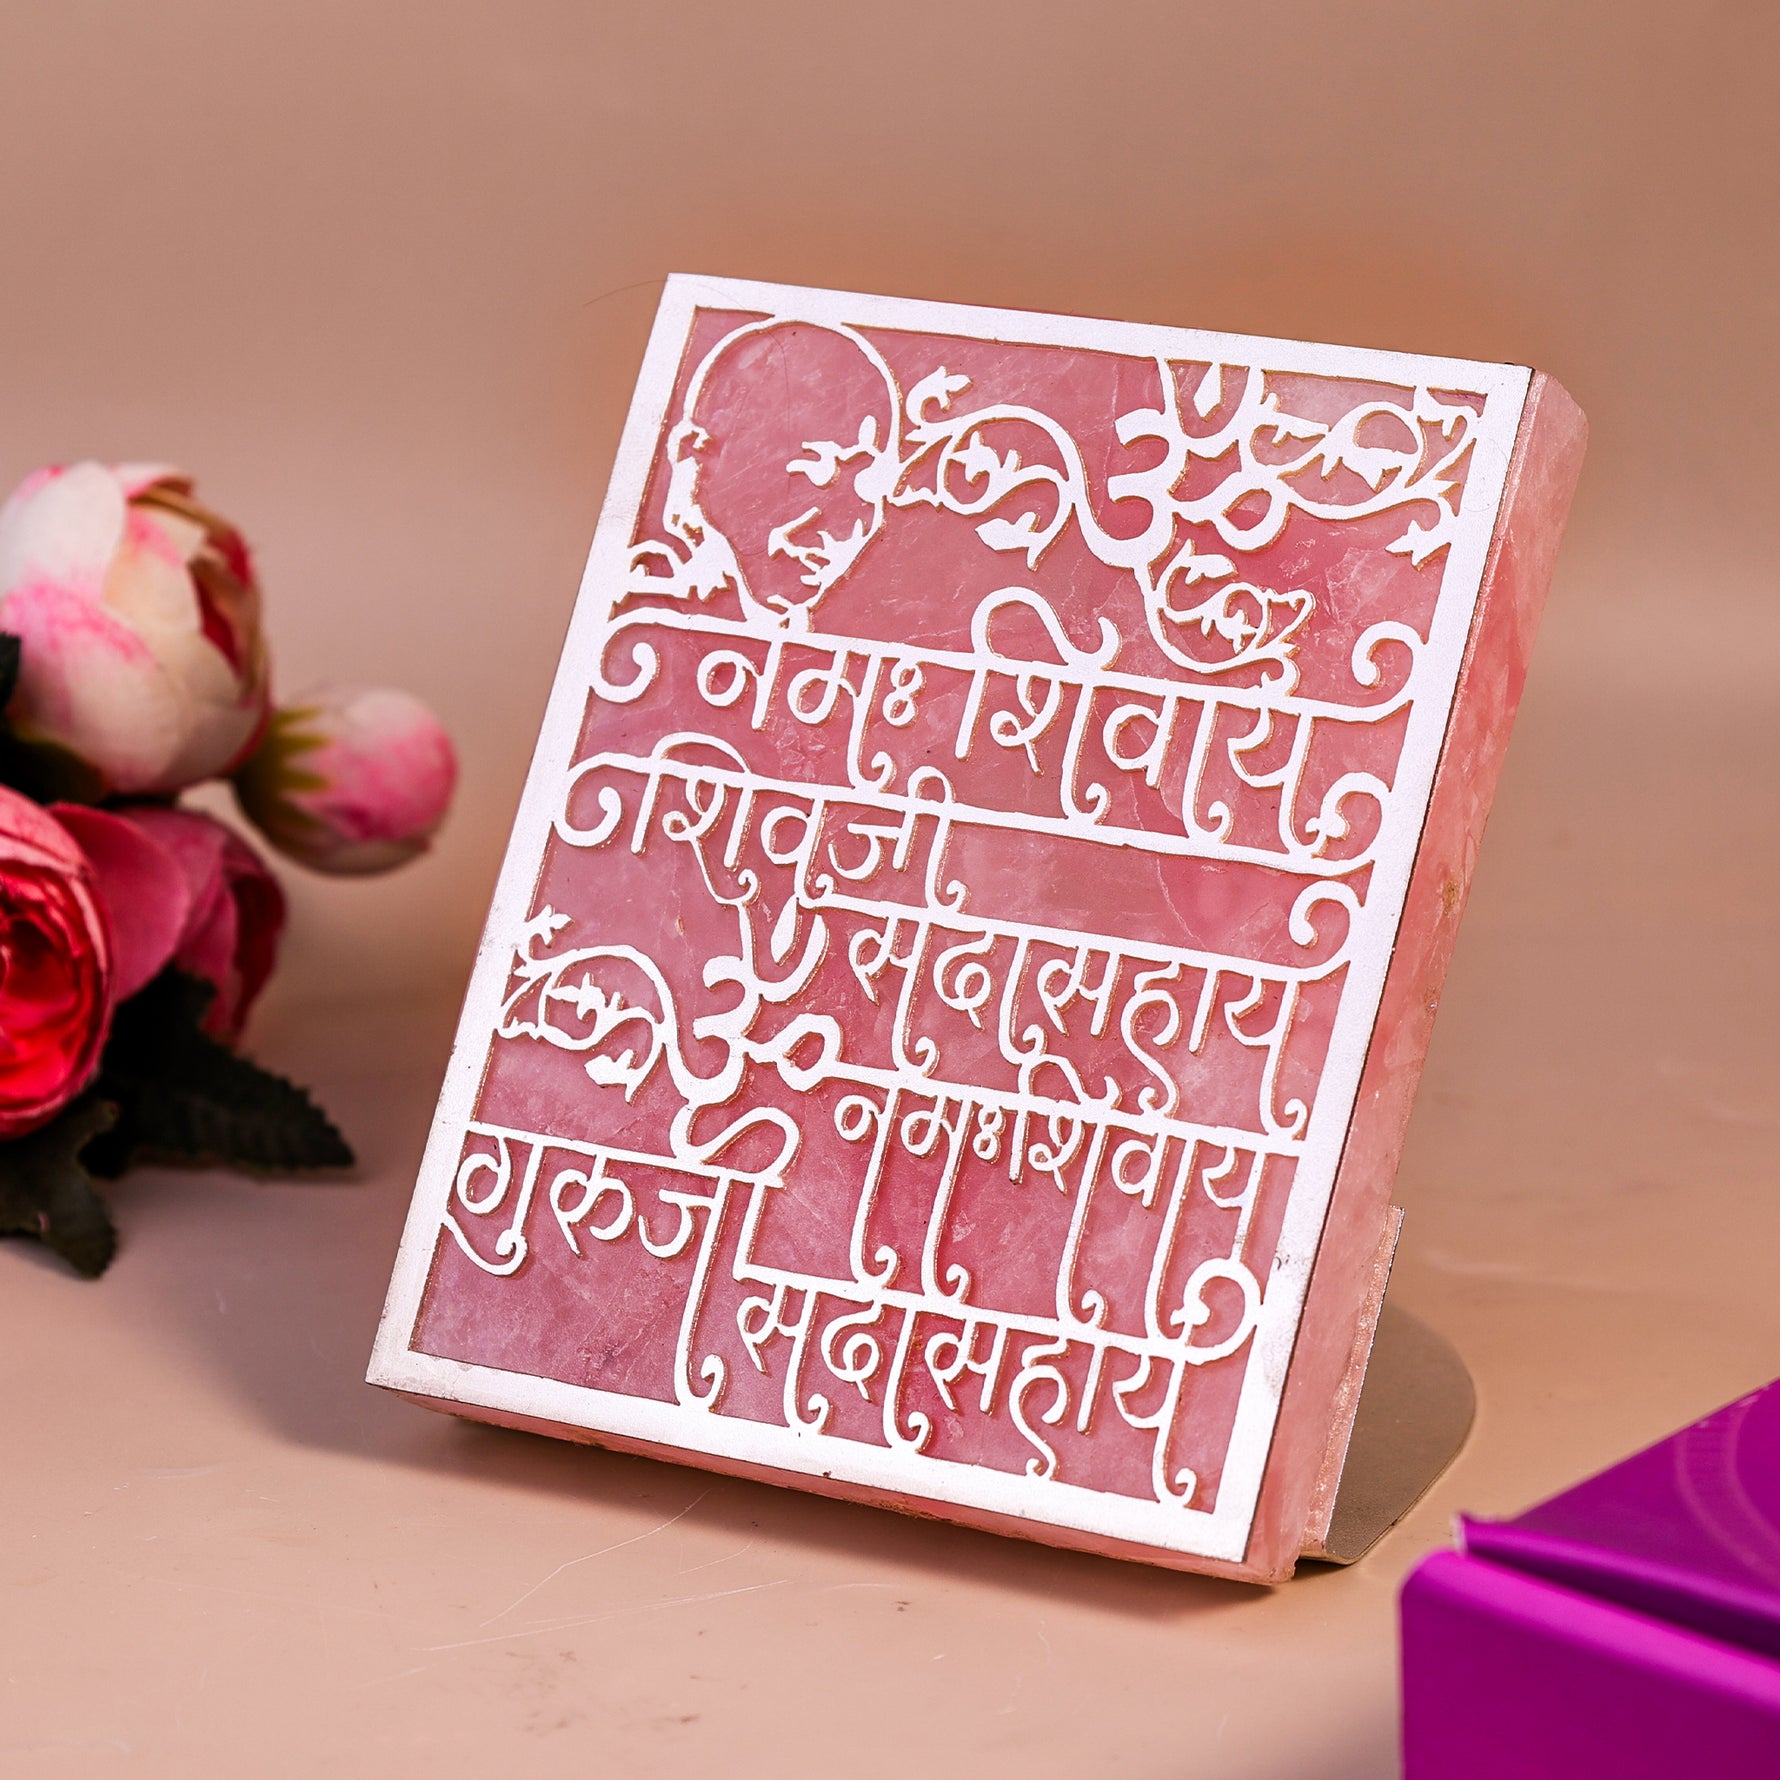 ॐ
नमः शिवाय
शिवजी
सदासहाय
ॐ नमः शिवाय
गुरुजी
सदासहाय